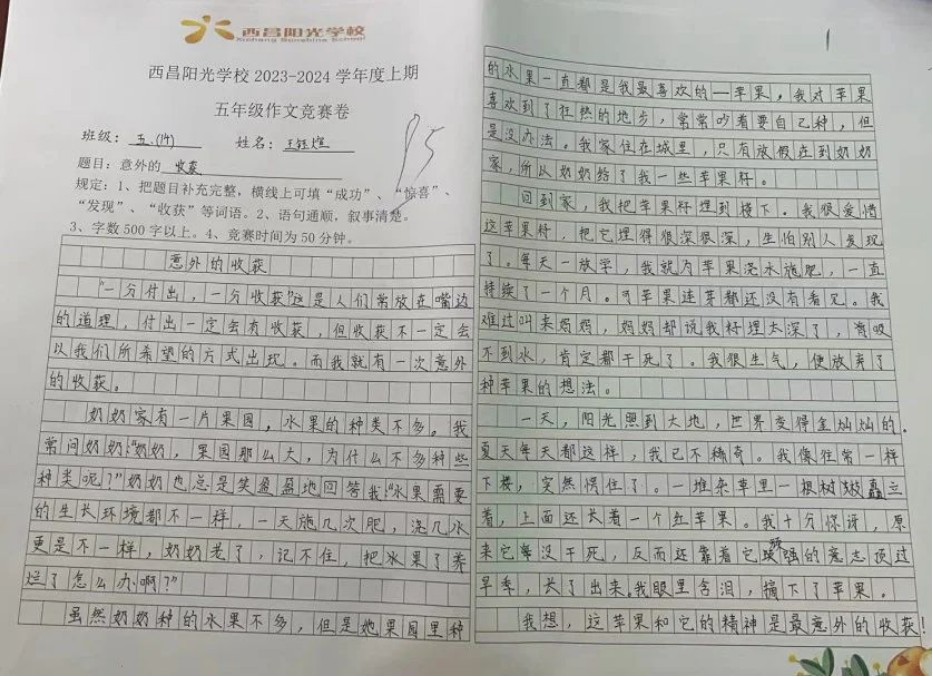 西昌阳光学校
Xichang Sunshine School
西昌阳光学校 2023-2024 学年度上期
五年级作文竞赛卷
班级：五.(1)
姓名：王钰煊
题目：意外的 收获
规定：1、把题目补充完整，横线上可填“成功”、“惊喜”、
“发现”、“收获”等词语。2、语句通顺，叙事清楚。
3、字数 500 字以上。4、竞赛时间为 50 分钟。
意外的收获
“一分付出，一分收获”这是人们常放在嘴边
的道理，付出一定会有收获，但收获不一定会
以我们所希望的方式出现。而我就有一次意外
的收获。
奶奶家有一片果园，水果的种类不多。我
常问奶奶：“奶奶，果园那么大，为什么不多种些
种类呢？”奶奶也总是笑盈盈地回答我：“水果需要
的生长环境都不一样，一天施几次肥，浇几水
更是不一样，奶奶老了，记不住，把水果了养
烂了怎么办啊？”
虽然奶奶种的水果不多，但是她果园里种
的水果一直都是我最喜欢的—苹果，我对苹果
喜欢到了狂热的地步，常常吵着要自己种，但
是没办法。我家住在城里，只有放假在到奶奶
家，所以奶奶给了我一些苹果籽。
回到家，我把苹果籽埋到楼下。我很爱惜
这苹果籽，把它埋得很深很深，生怕别人发现
了。每天一放学，我就为苹果浇水施肥，一直
持续了一个月。可苹果连芽都还没有看见。我
难过叫来妈妈，妈妈却说我籽埋太深了，
不到水，肯定都干死了。我很生气，便放弃了
种苹果的想法。
一天，阳光照到大地，世界变得金灿灿的。
夏天每天都这样，我已不稀奇。我像往常一样
下楼，突然愣住了。一堆杂草里一根树矗立
着，上面还长着一个红苹果。我十分惊讶，原
来它没干死，反而还靠着它顽强的意志度过
旱季，长了出来。我眼里含泪，摘下了苹果。
我想，这苹果和它的精神是最意外的收获！